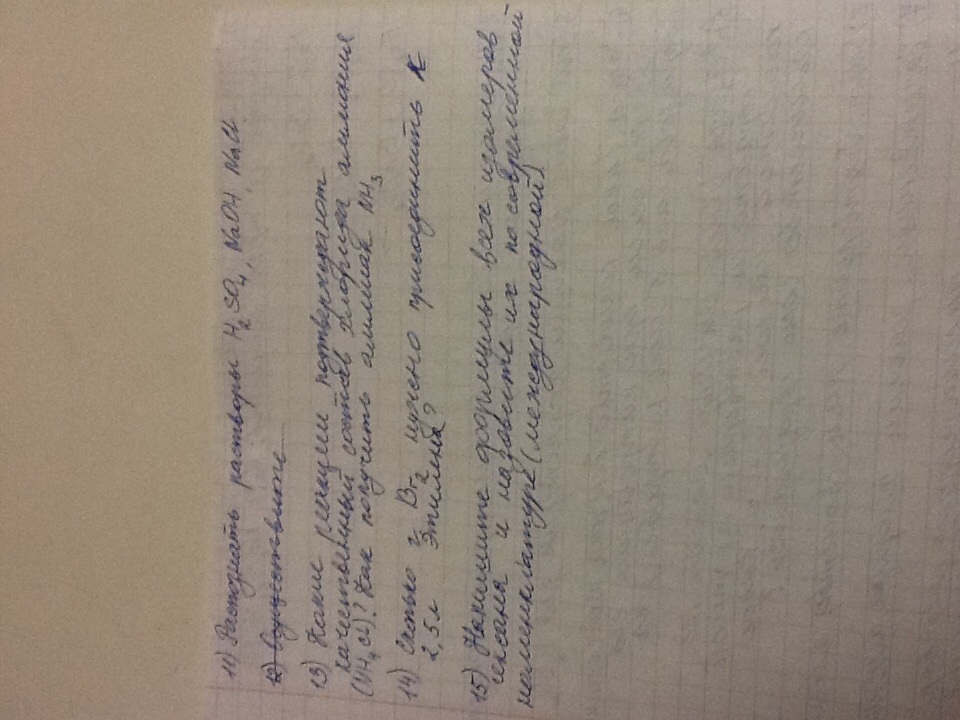 11) Распознать растворы H2SO4, NaOH, NaCl.
12) Осуществление
13) Какие реакции подтверждают
качественный состав хлорида аммония
(NH4Cl)? Как получить аммиак NH3
14) Сколько г Br2 нужно присоединить к
2,5л этилена?
15) Напишите формулы всех изомеров
гексана и назовите их по современной
номенклатуре (международной)